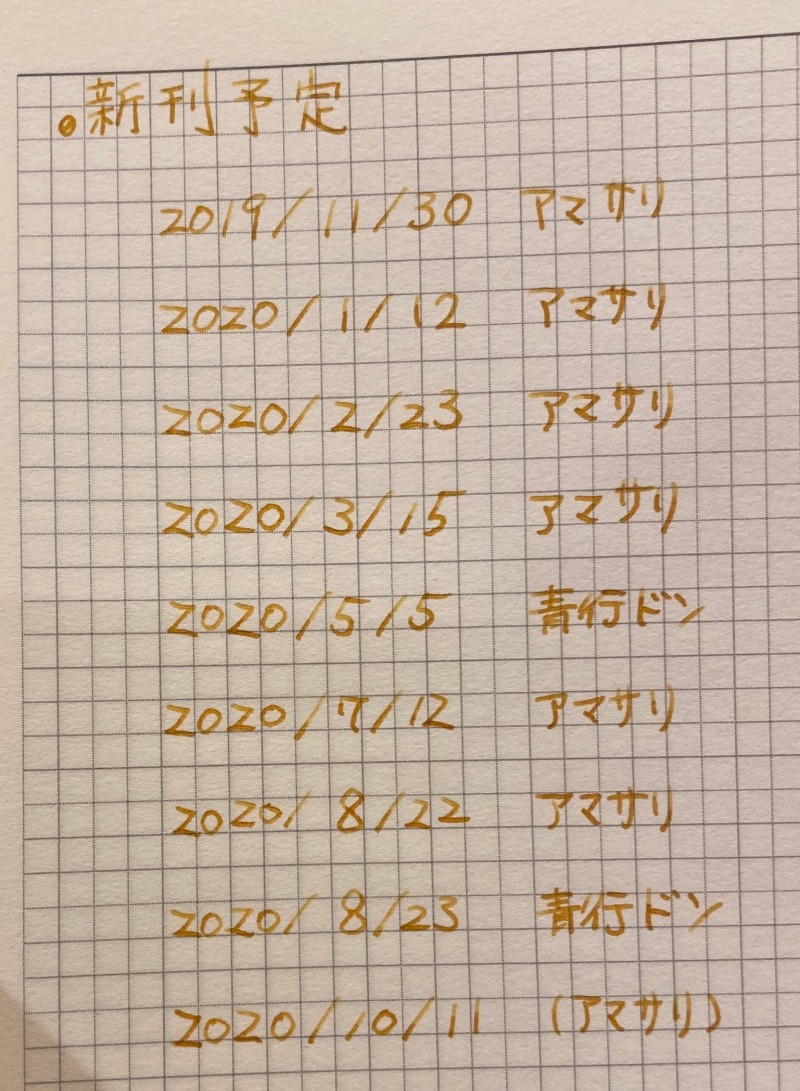 。新刊予定
2019/11/30 アマサリ
2020/1/12 アマサリ
2020/2/23 アマサリ
2020/3/15 アマサリ
2020/5/5 青行ドン
2020/7/12 アマサリ
2020/8/22 アマサリ
2020/8/23 青行ドン
2020/10/11 (アマサリ)